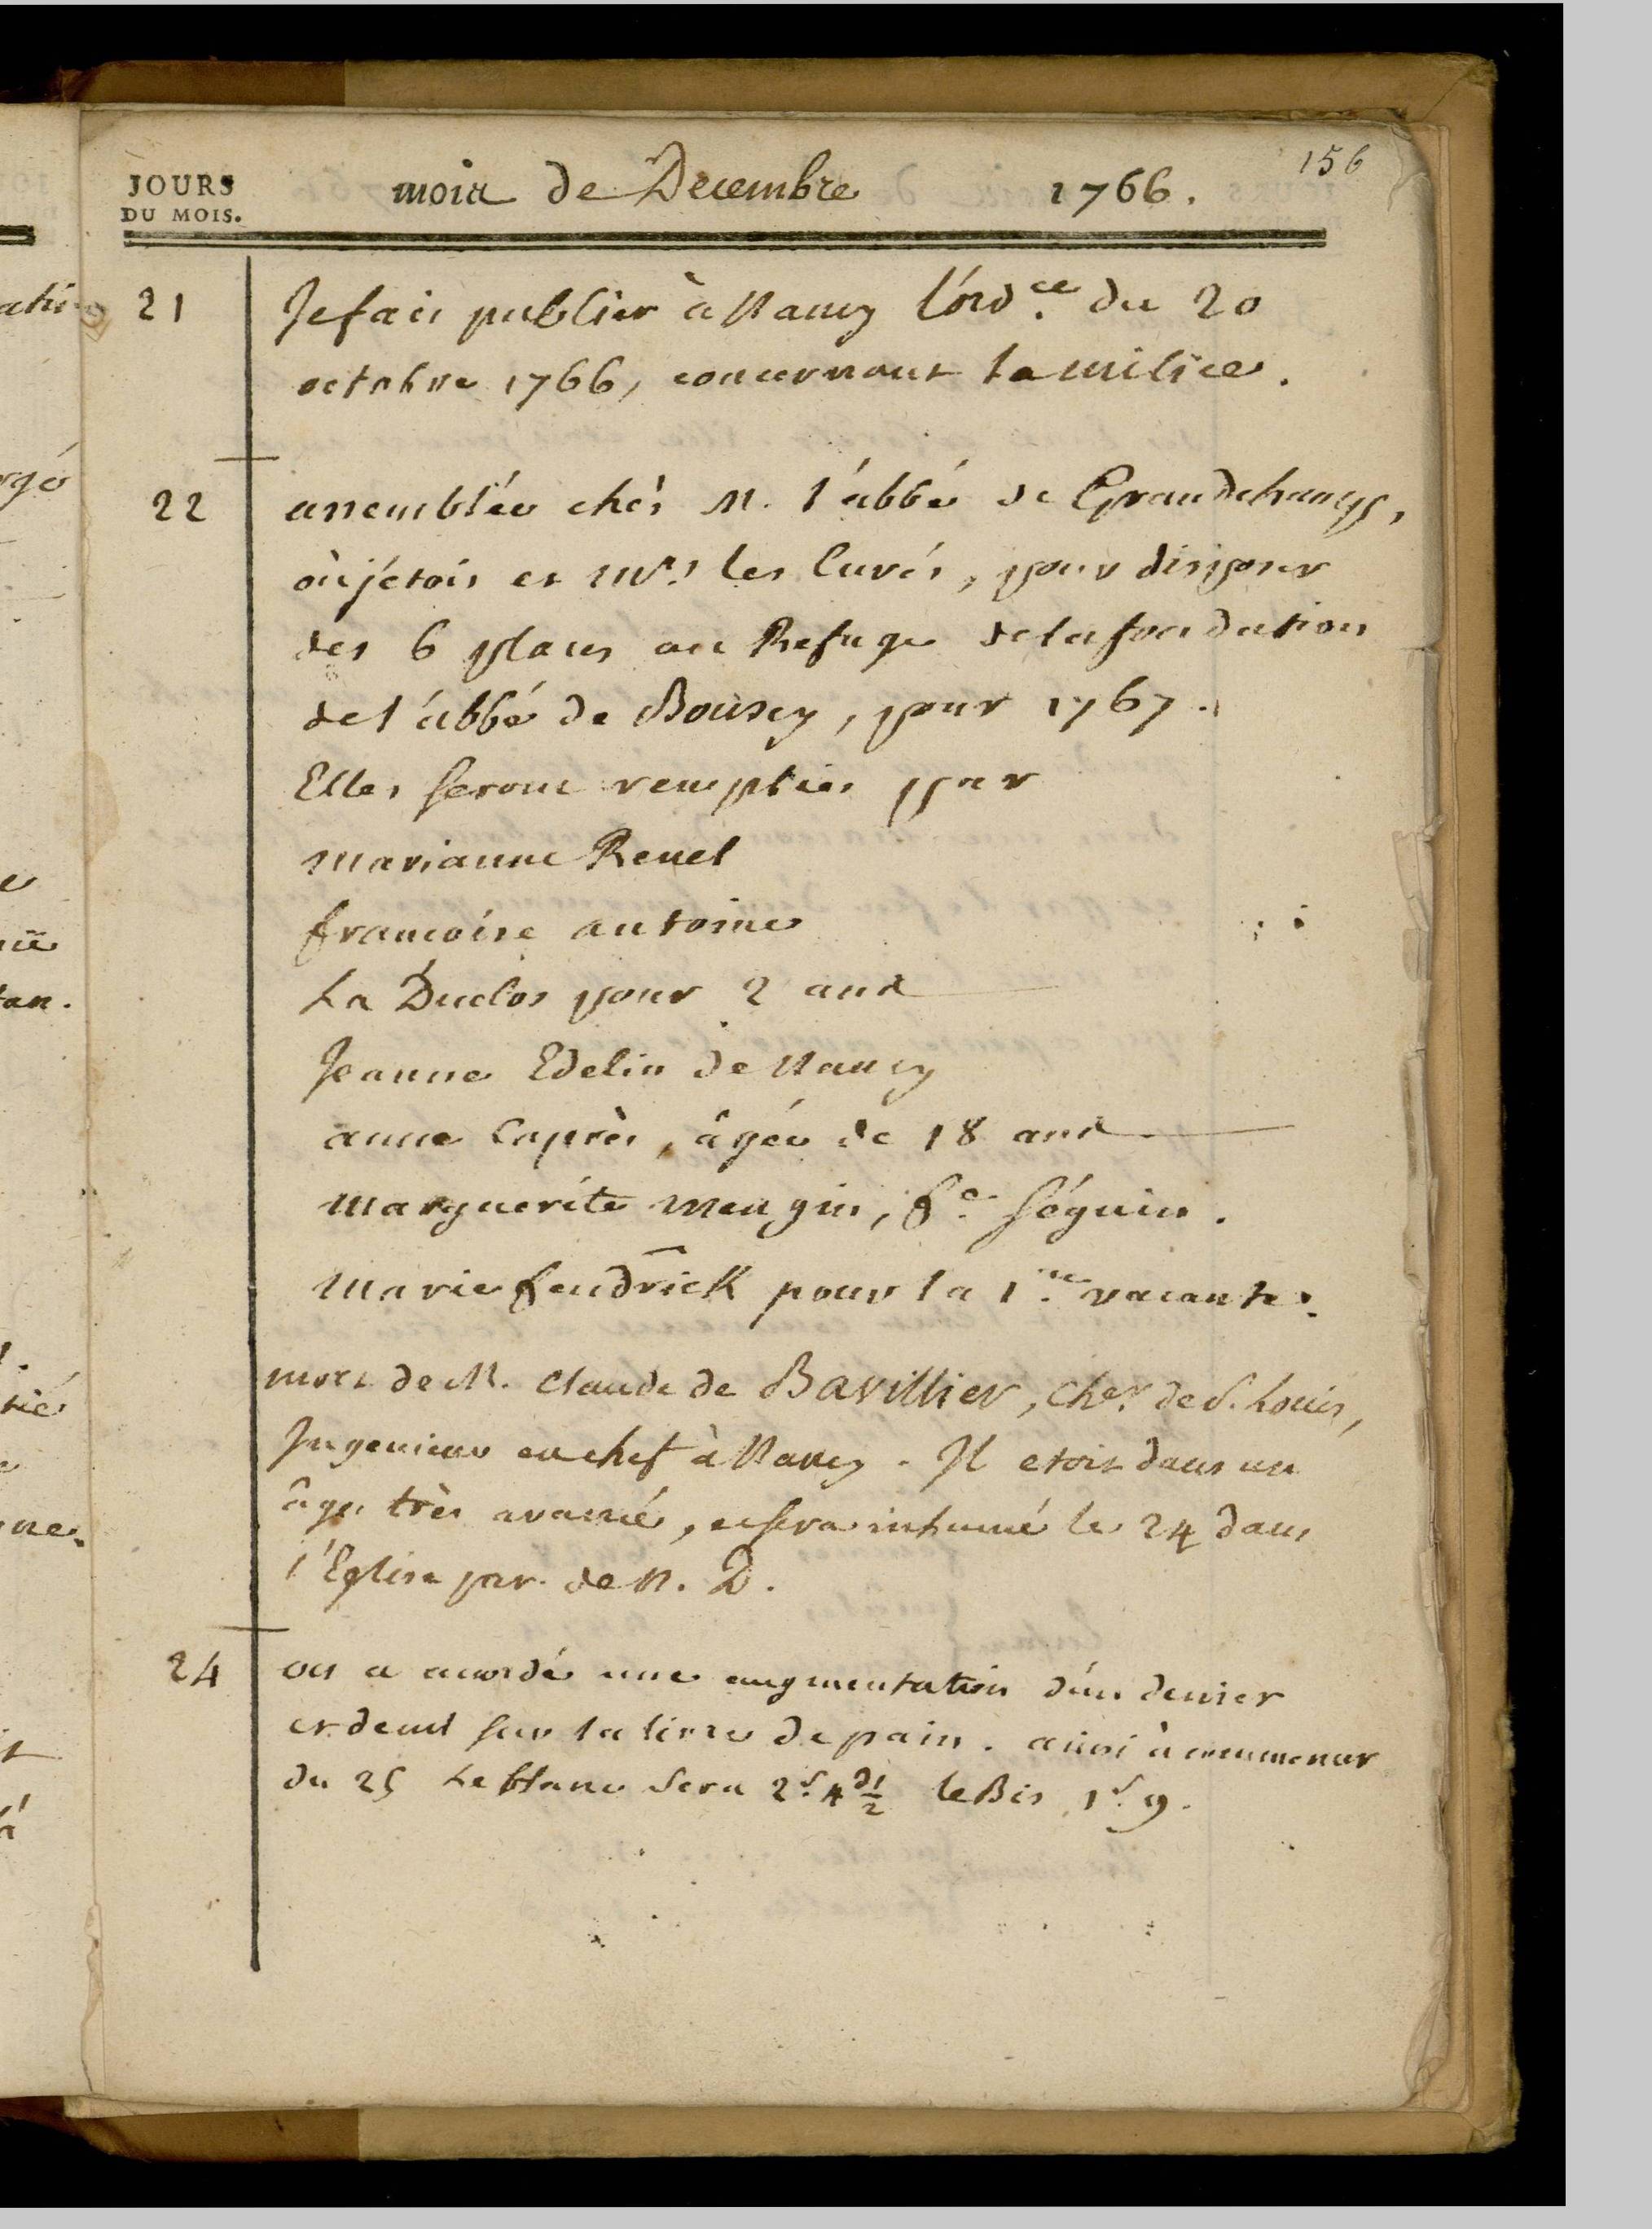 156
JOURS
DU MOIS.
mois de Decembre 1766.
21 Je fais publier à Nancy l'ord.ce du 20
octobre 1766, concernant la milice.
22 assemblée chés M. l'abbé de Grandchamps,
où j'etois et Mrs. les Curés, pour disposer
des 6 places au Refuge de la fondation
de l'abbé de Bousey, pour 1767.
Elles seront remplies par
Marianne Renel
francoise antoine
La Duclos pour 2 ans
Jeanne Edelin de Nancy
anne Cuprès, âgée de 18 ans
Marguerite Mengin, fe. Séguin.
Marie fendrick pour la 1.re vacante.
mort de M. Claude de Bavillier, Cher. de S. Louis,
Ingenieur en chef à Nancy. Il etoit dans un
âge très avancé, et sera inhumé le 24 dans
l'Eglise par. de N. D.
24 on a acordé une augmentation d'un denier
et demi sur la livre de pain. ainsi à commencer
du 25 Le blanc sera 2s. 4d 1/2 le Bis 1s. 9.